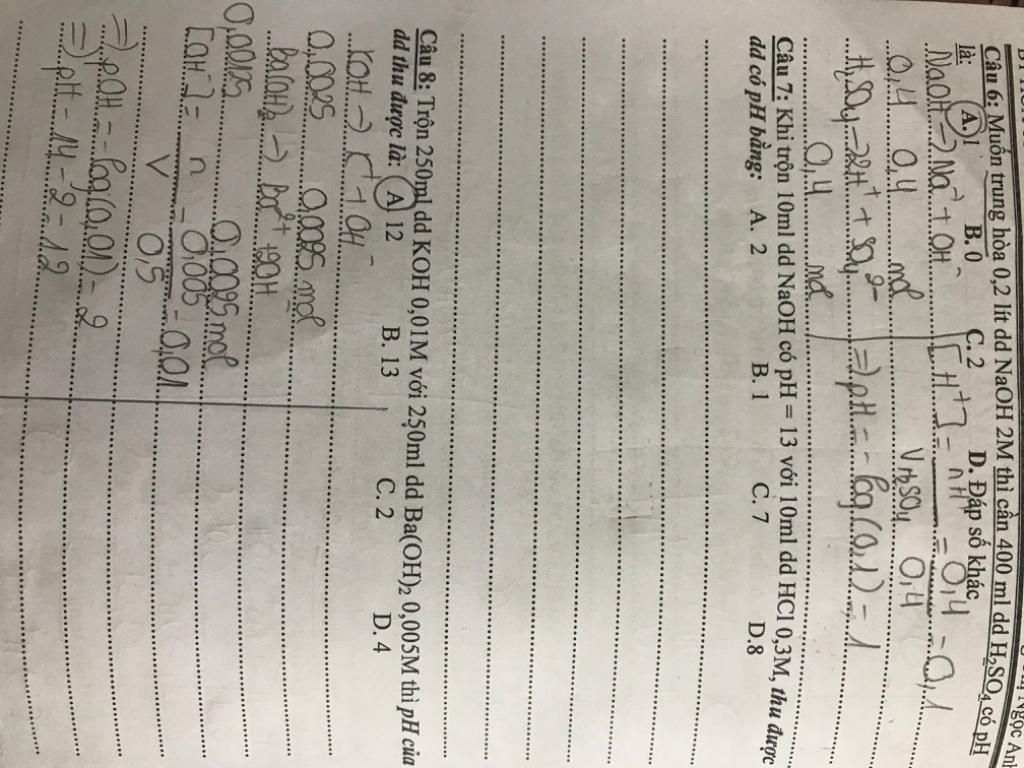 Ngọc Anh
Câu 6: Muốn trung hòa 0,2 lít dd NaOH 2M thì cần 400 ml dd H₂SO₄ có pH
là: A. 1 B. 0 C. 2 D. Đáp số khác
NaOH → Na⁺ + OH⁻
0,4 0,4 mol
H₂SO₄ → 2H⁺ + SO₄²⁻
0,4 mol
[H⁺] = nH⁺ / V H₂SO₄ = 0,4 / 0,4 = 0,1
⇒ pH = -log(0,1) = 1
Câu 7: Khi trộn 10ml dd NaOH có pH = 13 với 10ml dd HCl 0,3M, thu được
dd có pH bằng: A. 2 B. 1 C. 7 D.8
Câu 8: Trộn 250ml dd KOH 0,01M với 250ml dd Ba(OH)₂ 0,005M thì pH của
dd thu được là: A. 12 B. 13 C. 2 D. 4
KOH → K⁺ + OH⁻
0,0025 0,0025 mol
Ba(OH)₂ → Ba²⁺ + 2OH
0,00125 0,0025 mol
[OH⁻] = n / V = 0,005 / 0,5 = 0,01
⇒ pOH = -log(0,01) = 2
⇒ pH = 14 - 2 = 12